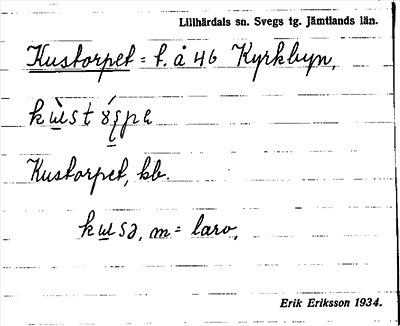 Lillhärdals sn. Svegs tg. Jämtlands län.
Kustorpet = t. å 46 Kyrkbyn.
Kustorpet, kb.
kusə, m = larv.
Erik Eriksson 1934.